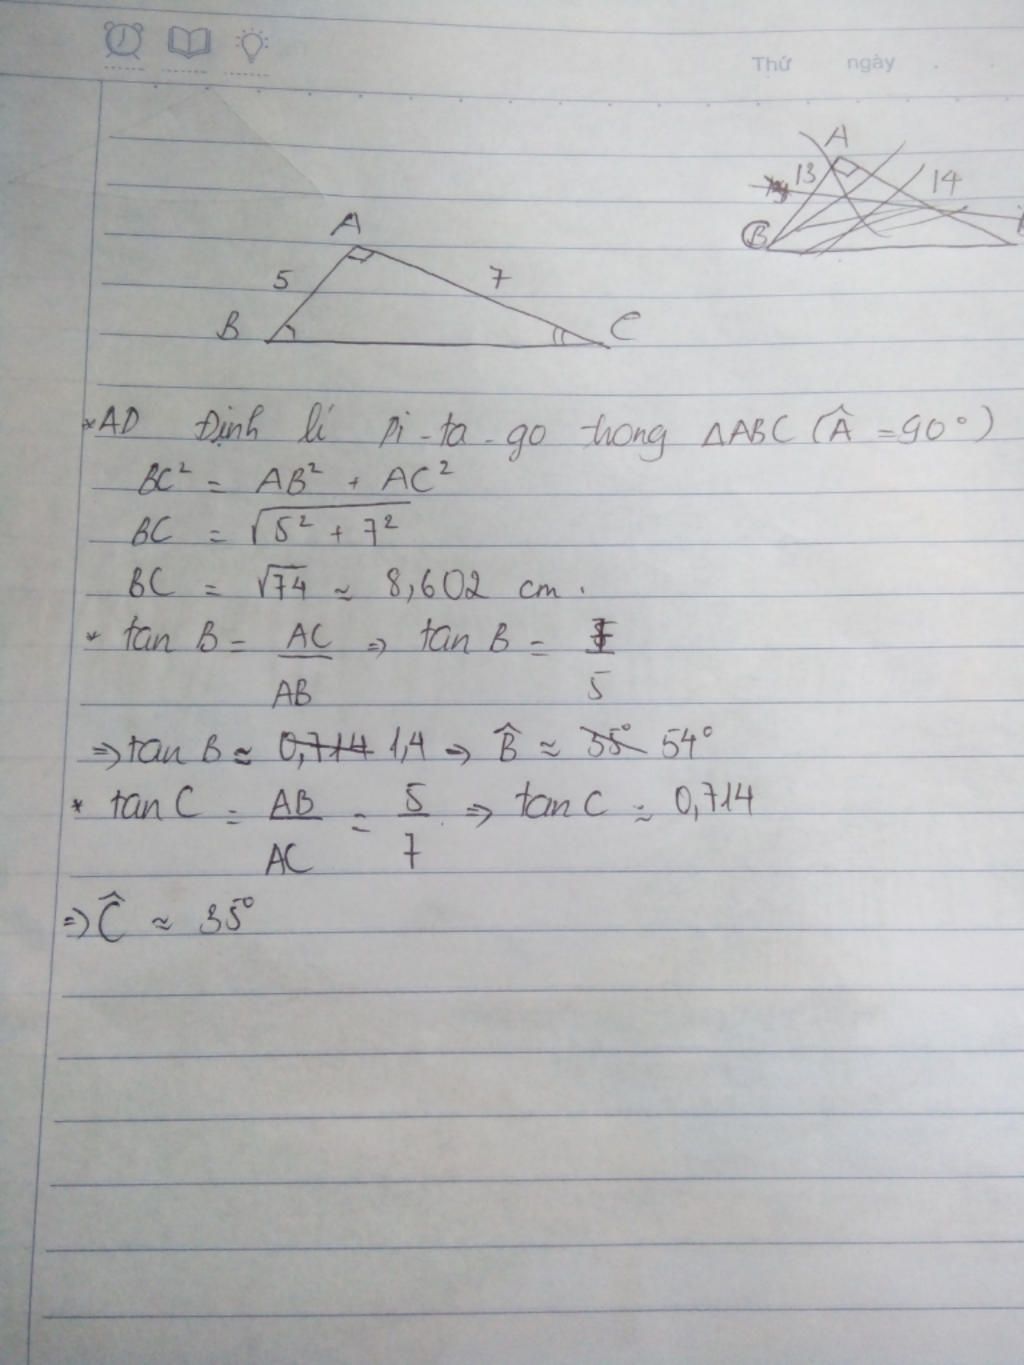 Thứ ngày
A
13
14
B
A
5
7
B
C
*AD Định lí Pi-ta-go trong ΔABC (Â = 90°)
BC² = AB² + AC²
BC = √5² + 7²
BC = √74 ≈ 8,602 cm.
* tan B = AC/AB ⇒ tan B = 7/5
⇒ tan B ≈ 0,714 1,4 ⇒ B̂ ≈ 35° 54°
* tan C = AB/AC = 5/7 ⇒ tan C ≈ 0,714
⇒ Ĉ ≈ 35°